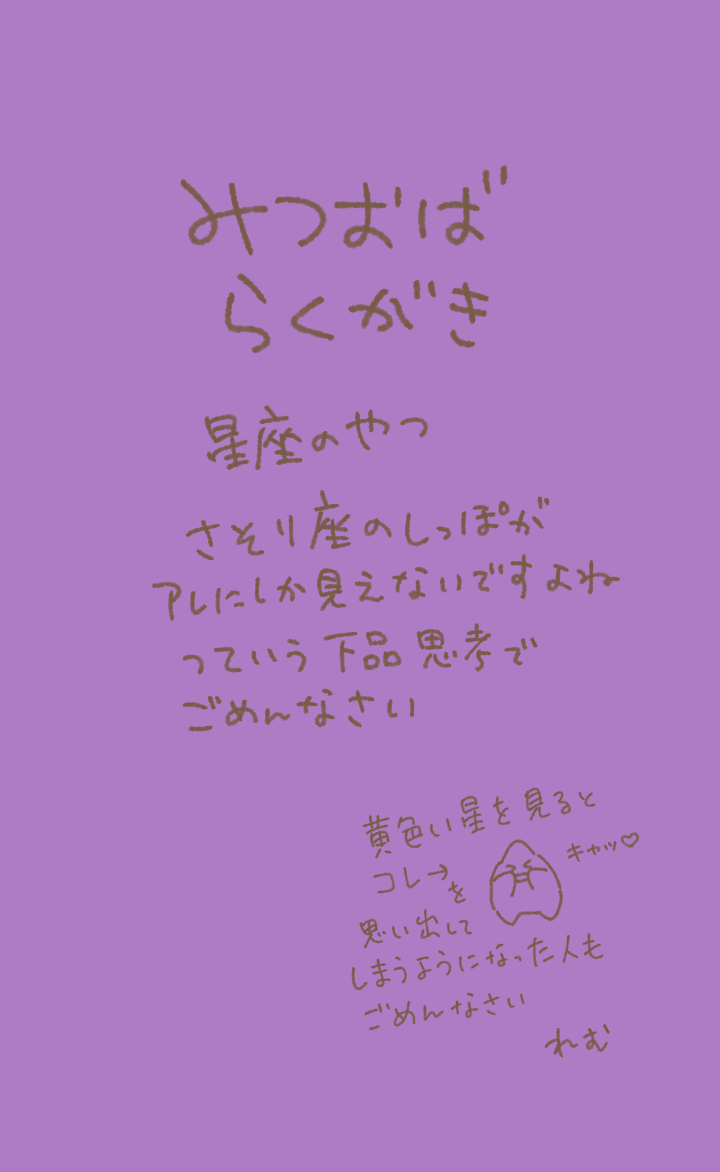 みつおば
らくがき
星座のやつ
さそり座のしっぽが
アレにしか見えないですよね
っていう下品思考で
ごめんなさい
黄色い星を見ると
コレ→を
キャッ♡
思い出して
しまうようになった人も
ごめんなさい
れむ